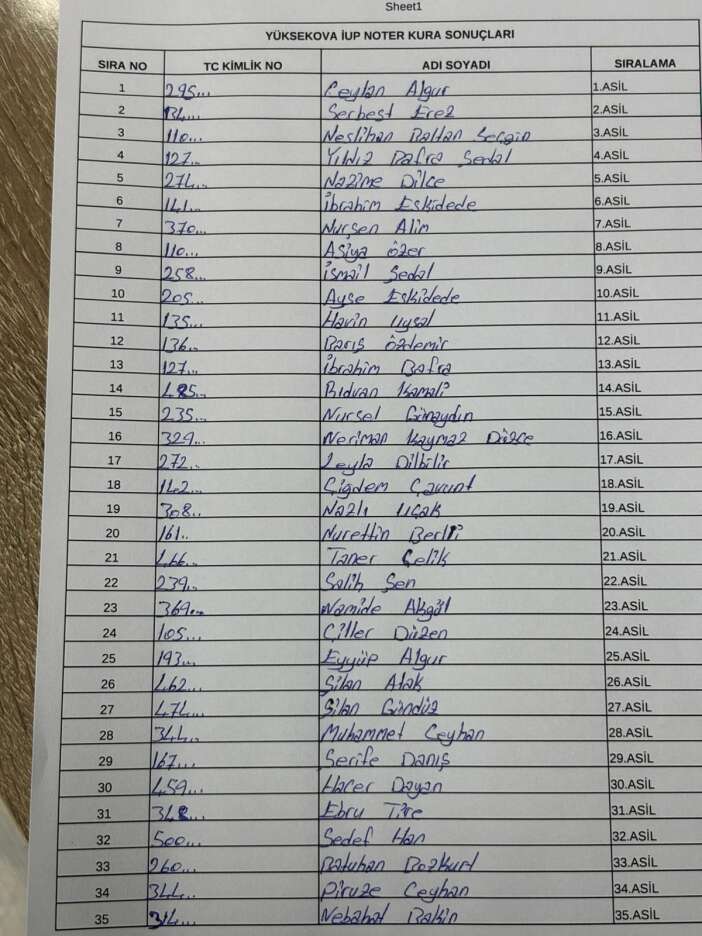 Sheet1
YÜKSEKOVA İUP NOTER KURA SONUÇLARI
SIRA NO TC KİMLİK NO ADI SOYADI SIRALAMA
1 295... Ceylan Algur 1.ASİL
2 134... Serbest Erez 2.ASİL
3 110... Neslihan Baltan Seçgin 3.ASİL
4 127.. Yıldız Bafra Sedal 4.ASİL
5 274... Nazime Dilce 5.ASİL
6 141... İbrahim Eskidede 6.ASİL
7 370... Nurşen Alim 7.ASİL
8 110... Asiya Özer 8.ASİL
9 258... İsmail Sedal 9.ASİL
10 205... Ayşe Eskidede 10.ASİL
11 135... Havin Uysal 11.ASİL
12 136.. Barış Özdemir 12.ASİL
13 127.. İbrahim Bafra 13.ASİL
14 485.. Rıdvan Kamalı 14.ASİL
15 235... Nursel Günaydın 15.ASİL
16 329.. Neriman Kaymaz Düzce 16.ASİL
17 272.. Leyla Dilbilir 17.ASİL
18 142... Çiğdem 18.ASİL
19 308.. Nazlı Uçak 19.ASİL
20 161.. Nurettin Berli 20.ASİL
21 466.. Taner Çelik 21.ASİL
22 239... Salih Şen 22.ASİL
23 369... Namide Akgül 23.ASİL
24 105... Çiller Düzen 24.ASİL
25 193... Eyyüp Algur 25.ASİL
26 462... Şilan Atak 26.ASİL
27 474... Şilan Gündüz 27.ASİL
28 344... Muhammet Ceyhan 28.ASİL
29 167... Şerife Danış 29.ASİL
30 459... Hacer Dayan 30.ASİL
31 348... Ebru Tire 31.ASİL
32 500... Sedef Han 32.ASİL
33 260... Batuhan Bozkurt 33.ASİL
34 344... Piruze Ceyhan 34.ASİL
35 314... Nebahat Bakin 35.ASİL